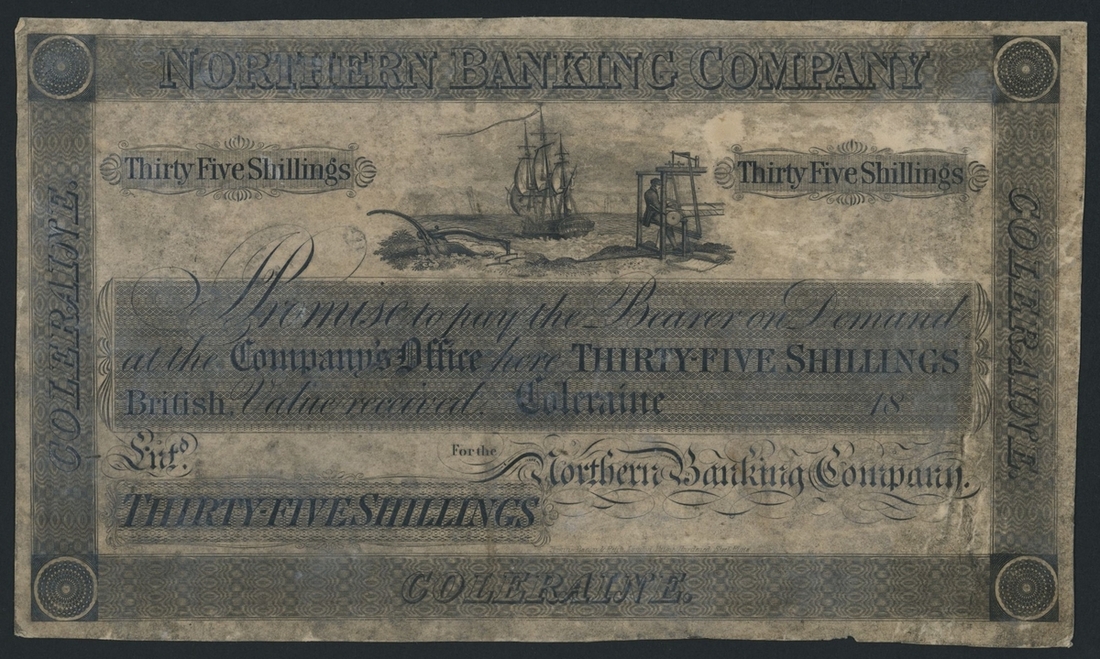 NORTHERN BANKING COMPANY
Thirty Five Shillings
Thirty Five Shillings
COLERAINE.
COLERAINE.
I Promise to pay the Bearer on Demand
at the Company's Office here THIRTY-FIVE SHILLINGS
British, Value received. Coleraine 18
Entd.
For the Northern Banking Company.
THIRTY-FIVE SHILLINGS
COLERAINE.